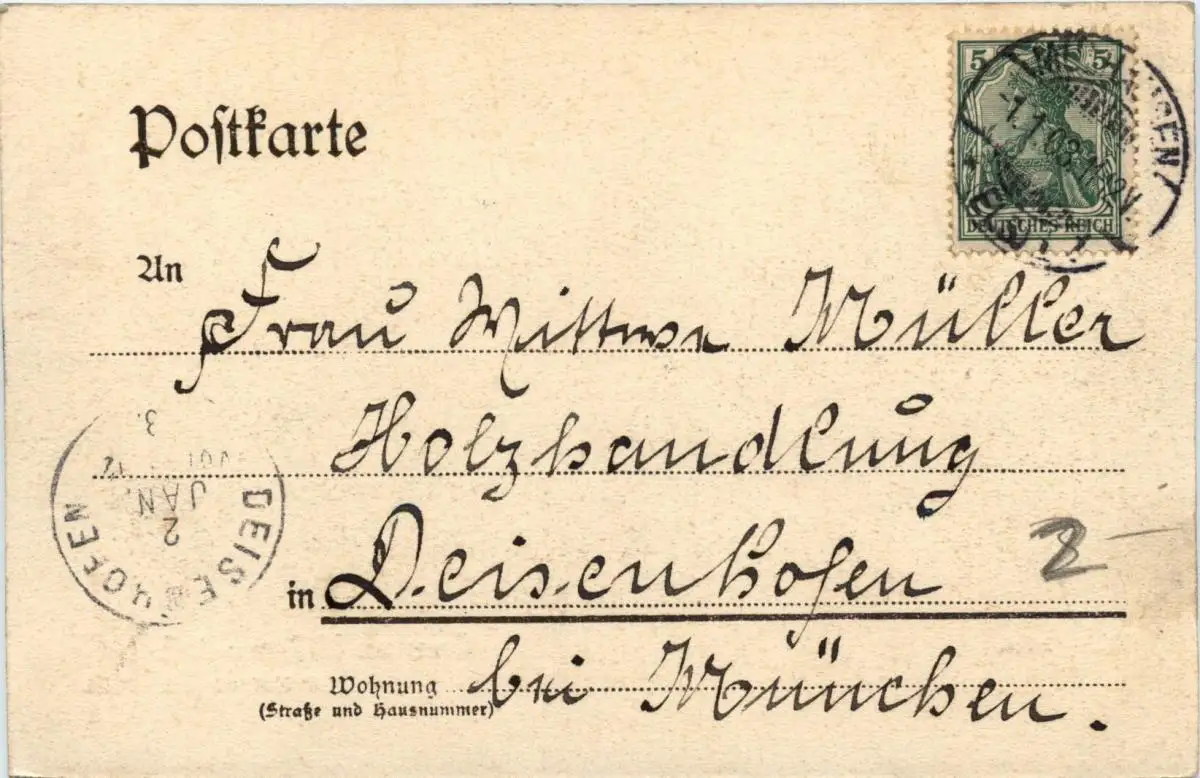 Postkarte
5 5
DEUTSCHES REICH
1.1.03.
An Frau Wittwe Müller
Holzhandlung
in Deisenhofen
2
bei München.
Wohnung
(Straße und Hausnummer)
DEISENHOFEN
2
JAN.
3.